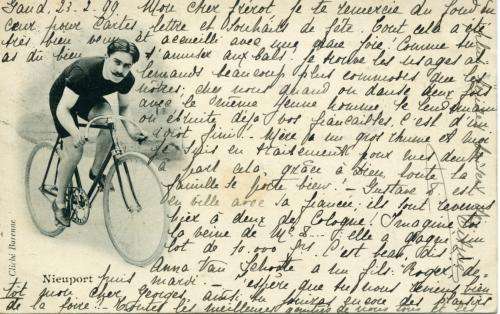 Gand, 23.2.99 Mon cher frérot, je te remercie du fond du
cœur pour cartes, lettre et souhaits de fête. Tout cela a été
très bien venu et accueilli avec une gaie joie. Comme tu
as du bien t'amuser aux bals. Je trouve les usages al-
lemands beaucoup plus commodes que les
nôtres; chez nous quand on danse deux fois
avec le même jeune homme, le lendemain
on ébruite déjà vos fiançailles. C'est d'un
idiot fini! Mère a un gros rhume et moi
je suis en traitement pour mes dents
à part cela, grâce à Dieu, toute la
famille se porte bien! - Gustave est
en belle avec sa fiancée; ils sont revenus
hier à deux de Cologne! Imagine toi
la veine de elle a gagné un
lot de 10.000 frs. C'est beau, dis
Anna Van a un fils. Roger, de-
puis mardi. - J'espère que tu nous reviens bien
tôt mon cher Georges, ainsi tu jouiras encore des plaisirs
de la foire. - Toutes les meilleures de nous tous et
Cliché Barenne
Nieuport